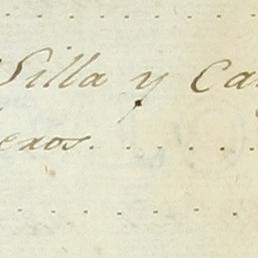 Silla y Ca
exos